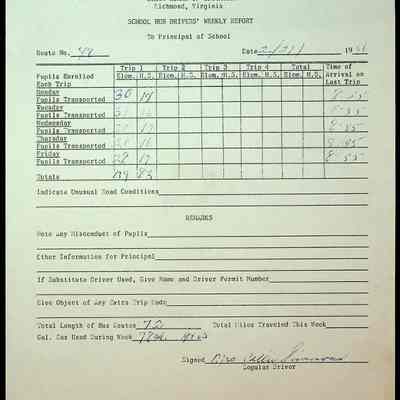 Richmond, Virginia
SCHOOL BUS DRIVERS' WEEKLY REPORT
To Principal of School
Route No. Date 2/21/ 19
Trip 1 Trip 2 Trip 3 Trip 4 Total Time of
Pupils Enrolled Elem. H.S. Elem. H.S. Elem. H.S. Elem. H.S. Elem. H.S. Arrival on
Each Trip Last Trip
Monday
Pupils Transported 30 17 8-55
Tuesday
Pupils Transported 8-55
Wednesday
Pupils Transported 17 8-55
Thursday
Pupils Transported 16 8-55
Friday
Pupils Transported 28 17 8-55
Totals 149 83
Indicate Unusual Road Conditions
REMARKS
Note Any Misconduct of Pupils
Other Information for Principal
If Substitute Driver Used, Give Name and Driver Permit Number
Give Object of Any Extra Trip Made
Total Length of Bus Routes 72 Total Miles Traveled This Week
Gal. Gas Used During Week
Signed Mrs.
Regular Driver